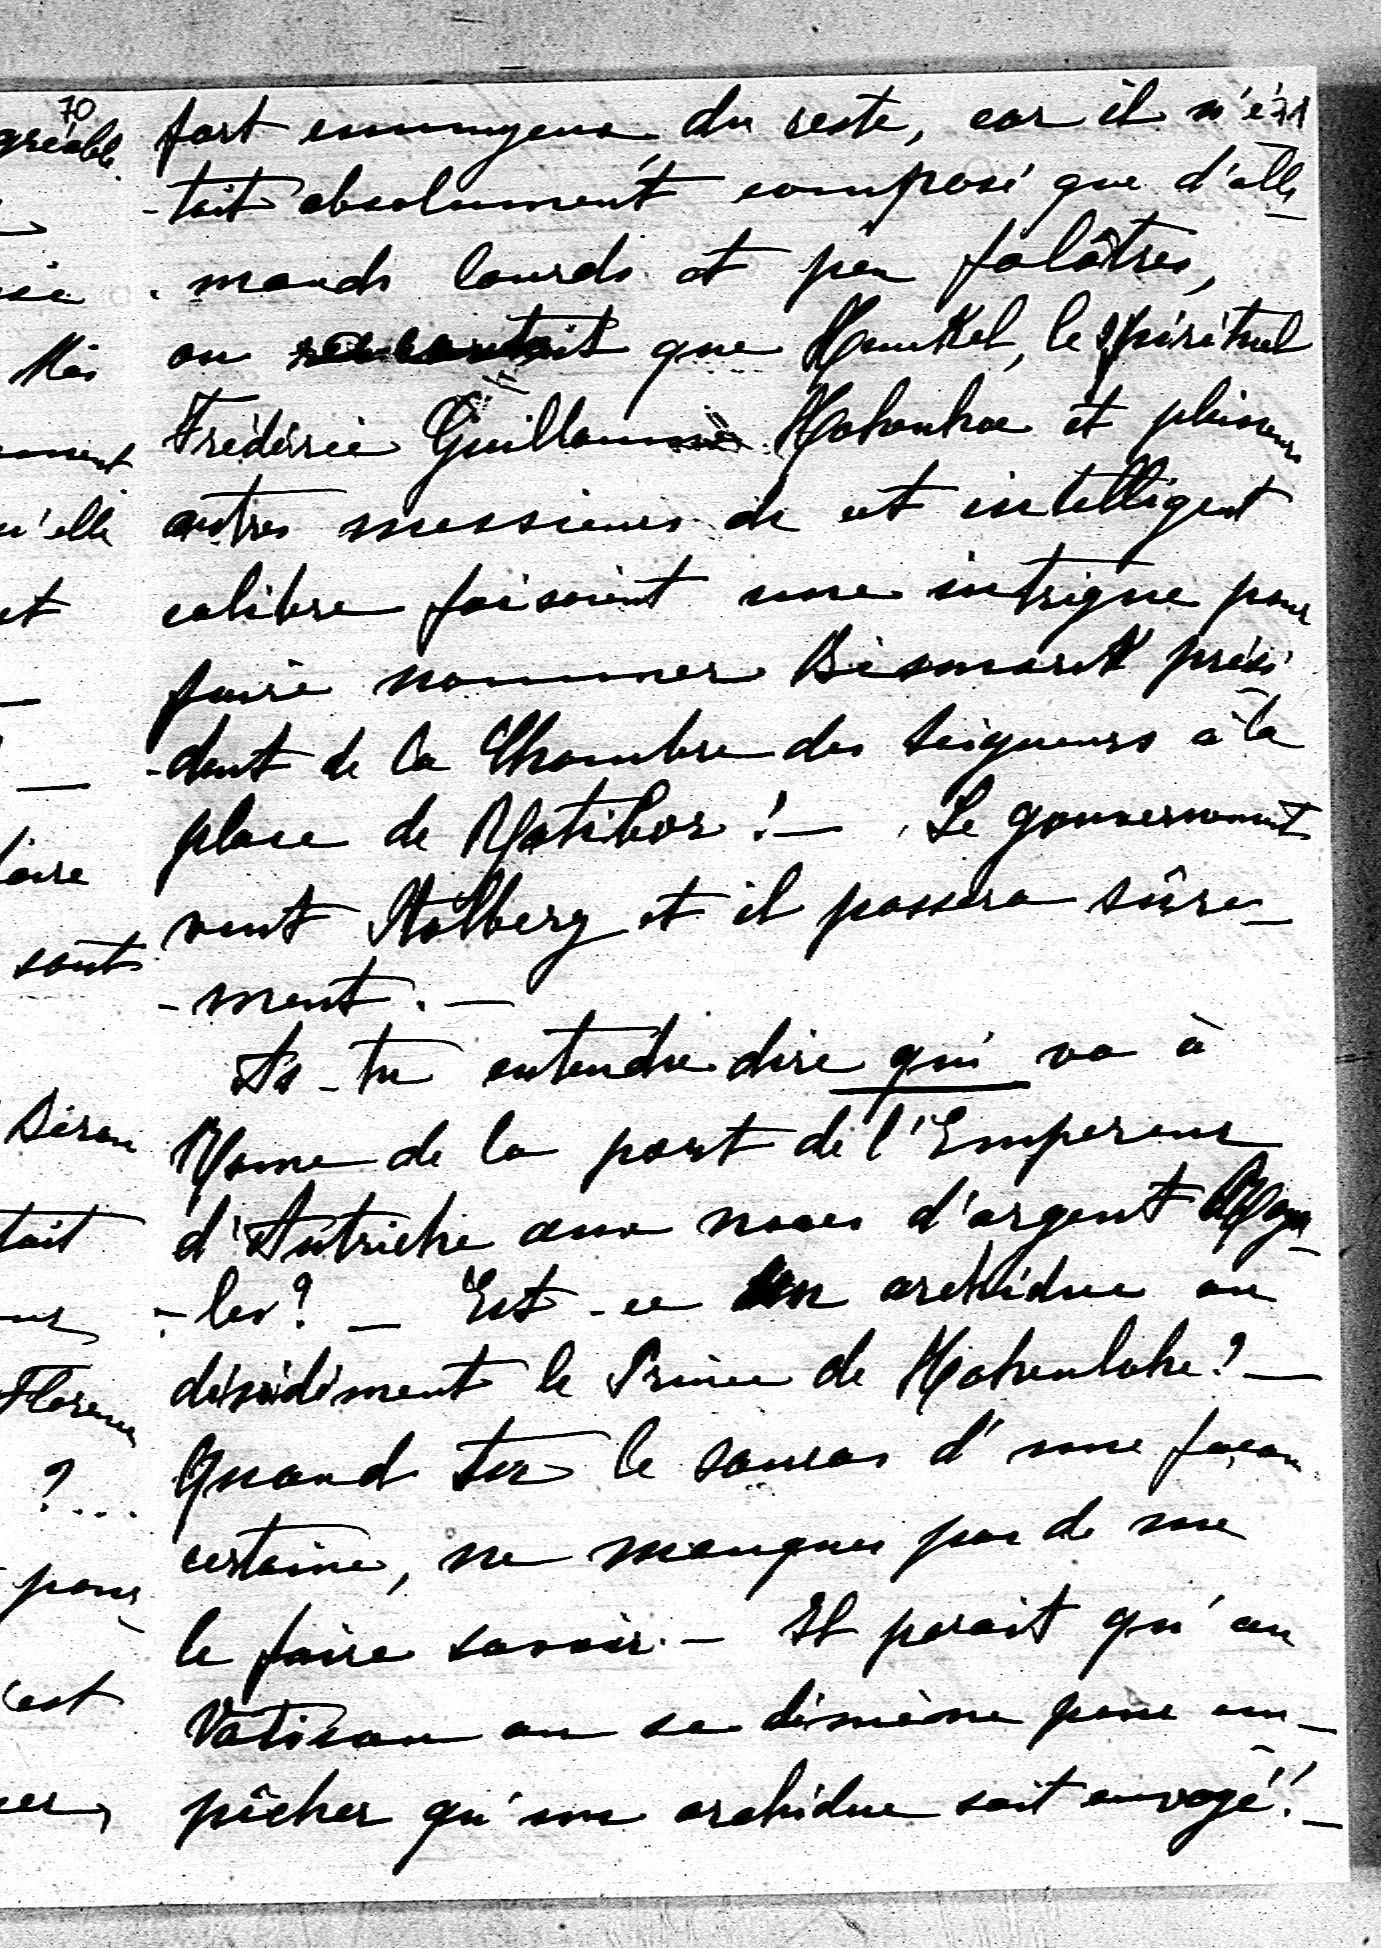 70
71
gréable
fort ennuyeux, du reste, car il n'é-
-tait absolument composé que d'alle
-mands lourds et peu folâtres,
on racontait que Henckel, le spirituel
Frédéric Guillaume Hohenhoe et plusieurs
autres messieurs de cet intelligent
calibre faisaient une intrigue pour
faire nommer Bismarck prési
-dent de la Chambre des Seigneurs à la
place de Ratibor! — Le gouvernement
veut Stolberg et il passera sûre-
-ment. —
As-tu entendu dire qui va à
Rome de la part de l'Empereur
d'Autriche aux noces d'argent Roya-
-les? — Est-ce un archiduc ou
décidément le Prince de Hohenlohe? —
Quand tu le sauras d'une façon
certaine, ne manques pas de me
le faire savoir. — Il parait qu'au
Vatican on se démène pour em-
pêcher qu'un archiduc soit envoyé! —
n'elle
et
sont
tait
Florence
? ...
pour
c'est